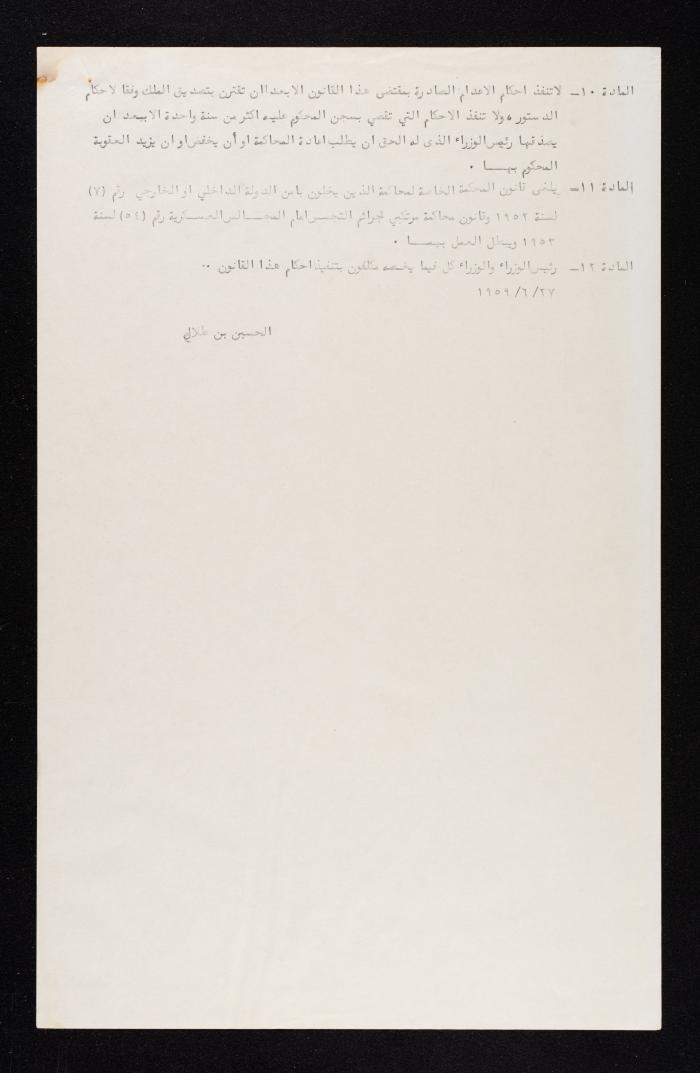 المادة ١٠ـ لاتنفذ احكام الاعدام الصادرة بمقتضى هذا القانون الابعدان تقترن بتصديق الملك وفقا لاحكام
الدستور ، ولا تنفذ الاحكام التي تقضي بسجن المحكوم عليه اكثر من سنة واحدة الابعد ان
يصدقها رئيس الوزراء الذى له الحق ان يطلب اعادة المحاكمة او أن يخفض او ان يزيد العقوبة
المحكوم بهـــا .
المادة ١١ـ يلغى قانون المحكمة الخاصة لمحاكمة الذين يخلون بامن الدولة الداخلي او الخارجي رقم (٧)
لسنة ١٩٥٢ وقانون محاكمة مرتكبي لجرائم التجسس امام المجـالس العسـكرية رقم (٥٤) لسنة
١٩٥٣ ويبطل العمل بهمـــا .
المادة ١٢ـ رئيس الوزراء والوزراء كل فيما يخصه مكلفون بتنفيذ احكام هذا القانون ..
١٩٥٩/٦/٢٧
الحسين بن طلال